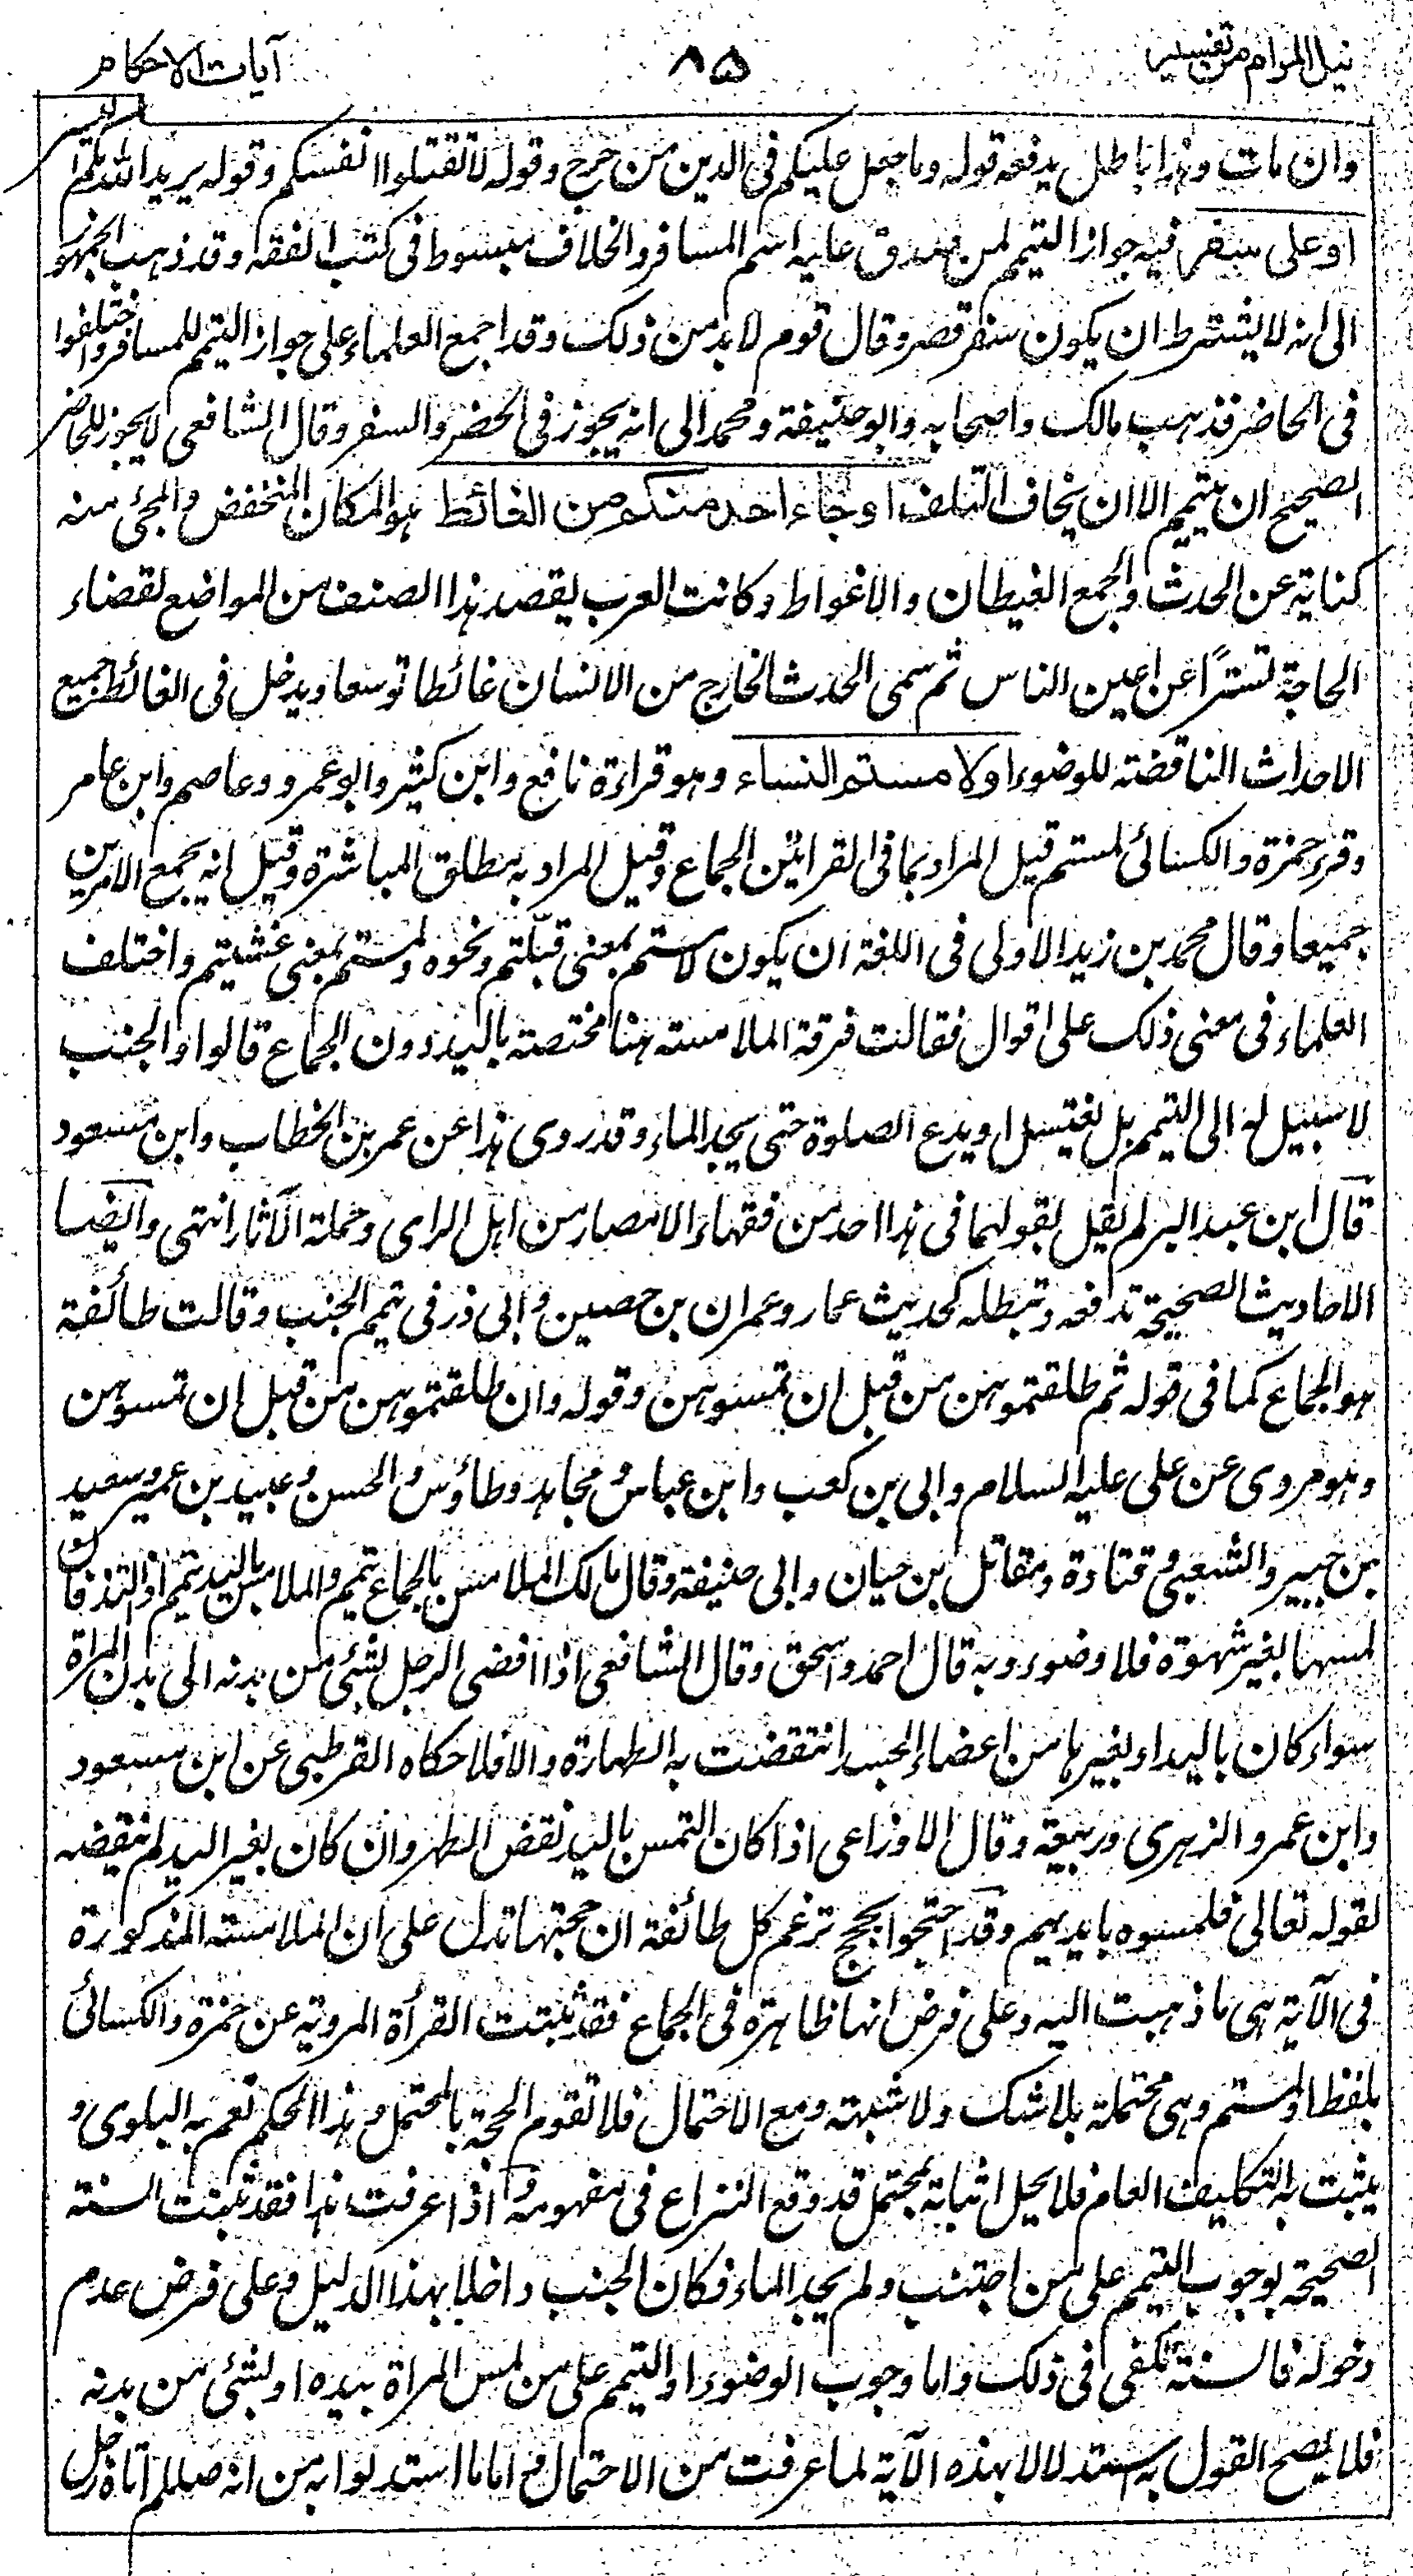 نيل المرام من تفسير
٨٥
آيات الاحكام
وان مات وهذا باطل يدفعه قوله وما جعل عليكم فى الدين من حرج وقوله لا تقتلوا انفسكم وقوله يريد الله بكم اليسر
او على سفر فيه جواز التيمم لمن صدق عليه اسم المسافر والخلاف مبسوط فى كتب الفقه وقد ذهب الجمهور
الى انه لا يشترط ان يكون سفر قصر وقال قوم لا بد من ذلك وقد اجمع العلماء على جواز التيمم للمسافر واختلفوا
فى الحاضر فذهب مالك واصحابه وابو حنيفة ومحمد الى انه يجوز فى الحضر والسفر وقال الشافعى لا يجوز للحاضر
الصحيح ان يتيمم الا ان يخاف التلف او جاء احد منكم من الغائط هو المكان المنخفض والمجئ منه
كناية عن الحدث والجمع الغيطان والاغواط وكانت العرب يقصد هذا الصنف من المواضع لقضاء
الحاجة تسترًا عن اعين الناس ثم سمى الحدث الخارج من الانسان غائطا توسعا ويدخل فى الغائط جميع
الاحداث الناقضة للوضوء اولا مستم النساء وهو قراءة نافع وابن كثير وابو عمرو وعاصم وابن عامر
وقرء حمزة والكسائى لمستم قيل المراد بما فى القرائين الجماع وقيل المراد به مطلق المباشرة وقيل انه يجمع الامرين
جميعا وقال محمد بن زيد الاولى فى اللغة ان يكون لامستم بمعنى قبّلتم ونحوه ولمستم بمعنى غشيتم واختلف
العلماء فى معنى ذلك على اقوال فقالت فرقة الملامسة هنا مختصة باليد دون الجماع قالوا والجنب
لا سبيل له الى التيمم بل يغتسل او يدع الصلوة حتى يجد الماء وقد روى هذا عن عمر بن الخطاب وابن مسعود
قال ابن عبد البر لم يقل بقولهما فى هذا احد من فقهاء الامصار من اهل الراى وحملة الآثار انتهى وايضا
الاحاديث الصحيحة تدافعه وتبطله كحديث عمار وعمران بن حصين وابى ذر فى تيمم الجنب وقالت طائفة
هو الجماع كما فى قوله ثم طلقتموهن من قبل ان تمسوهن وقوله وان طلقتموهن من قبل ان تمسوهن
وهو مروى عن على عليه السلام وابى بن كعب وابن عباس ومجاهد وطاؤس والحسن وعبيد بن عمير وسعيد
بن جبير والشعبى وقتادة ومقاتل بن حيان وابى حنيفة وقال مالك الملامس بالجماع تيمم والملامس باليد يتيمم اذا التذ فان
لمسها بغير شهوة فلا وضوء وبه قال احمد واسحق وقال الشافعى اذا افضى الرجل بشئ من بدنه الى بدن المراة
سواء كان باليد او بغيرها من اعضاء الجسد انتقضت به الطهارة والا فلا حكاه القرطبى عن ابن مسعود
وابن عمر والزهرى وربيعة وقال الاوزاعى اذا كان اللمس باليد نقض الطهر وان كان بغير اليد لم ينقضه
لقوله تعالى فلمسوه بايديهم وقد احتجوا بحجج تزعم كل طائفة ان حجتها تدل على ان الملامسة المذكورة
فى الآية هى ما ذهبت اليه وعلى فرض انها ظاهرة فى الجماع فقد ثبتت القرأة المروية عن حمزة والكسائى
بلفظ او لمستم وهى محتملة بلا شك ولا شبهة ومع الاحتمال فلا تقوم الحجة بالمحتمل وهذا الحكم تعم به البلوى و
يثبت به التكليف العام فلا يحل اثباته بمحتمل قد وقع النزاع فى مفهومه واذا عرفت هذا فقد ثبتت السنة
الصحيحة بوجوب التيمم على من اجتنب ولم يجد الماء فكان الجنب داخلا بهذا الدليل وعلى فرض عدم
دخوله فالسنة تكفى فى ذلك واما وجوب الوضوء او التيمم على من لمس المراة بيده او بشئ من بدنه
فلا يصح القول به استدلالا بهذه الآية لما عرفت من الاحتمال واما ما استدلوا به من انه صللم اتاه رجل